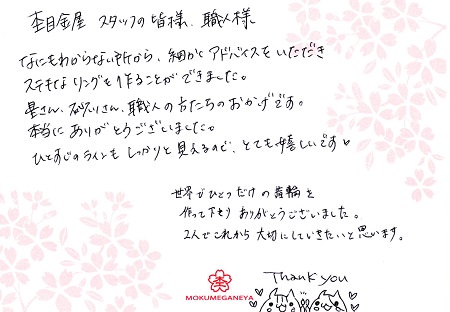 杢目金屋 スタッフの皆様、職人様
なにもわからない所から、細かくアドバイスをいただき
ステキなリングを作ることができました。
星さん、砂川さん、職人の方たちのおかげです。
本当にありがとうございました。
ひとすじのラインもしっかりと見えるので、とても嬉しいです♥
世界でひとつだけの指輪を
作って下さり ありがとうございました。
2人でこれから 大切にしていきたいと思います。
Thank you
MOKUMEGANEYA